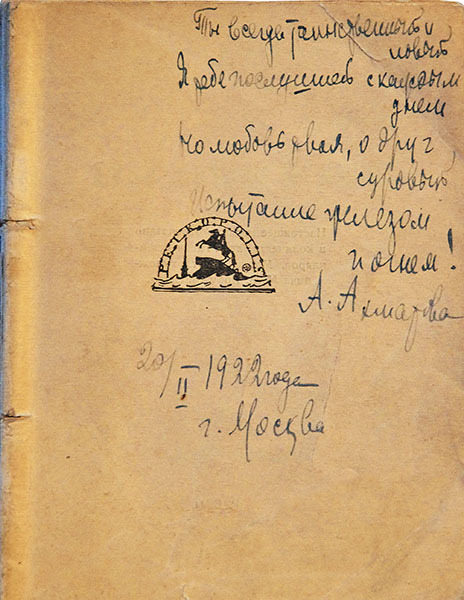 Ты всегда таинственный и
новый
Я тебе послушней с каждым
днем
Но любовь твоя, о друг
суровый
Испытание железом
и огнем!
А. Ахматова
PETROPOLIS
20/II 1922 года
г. Москва